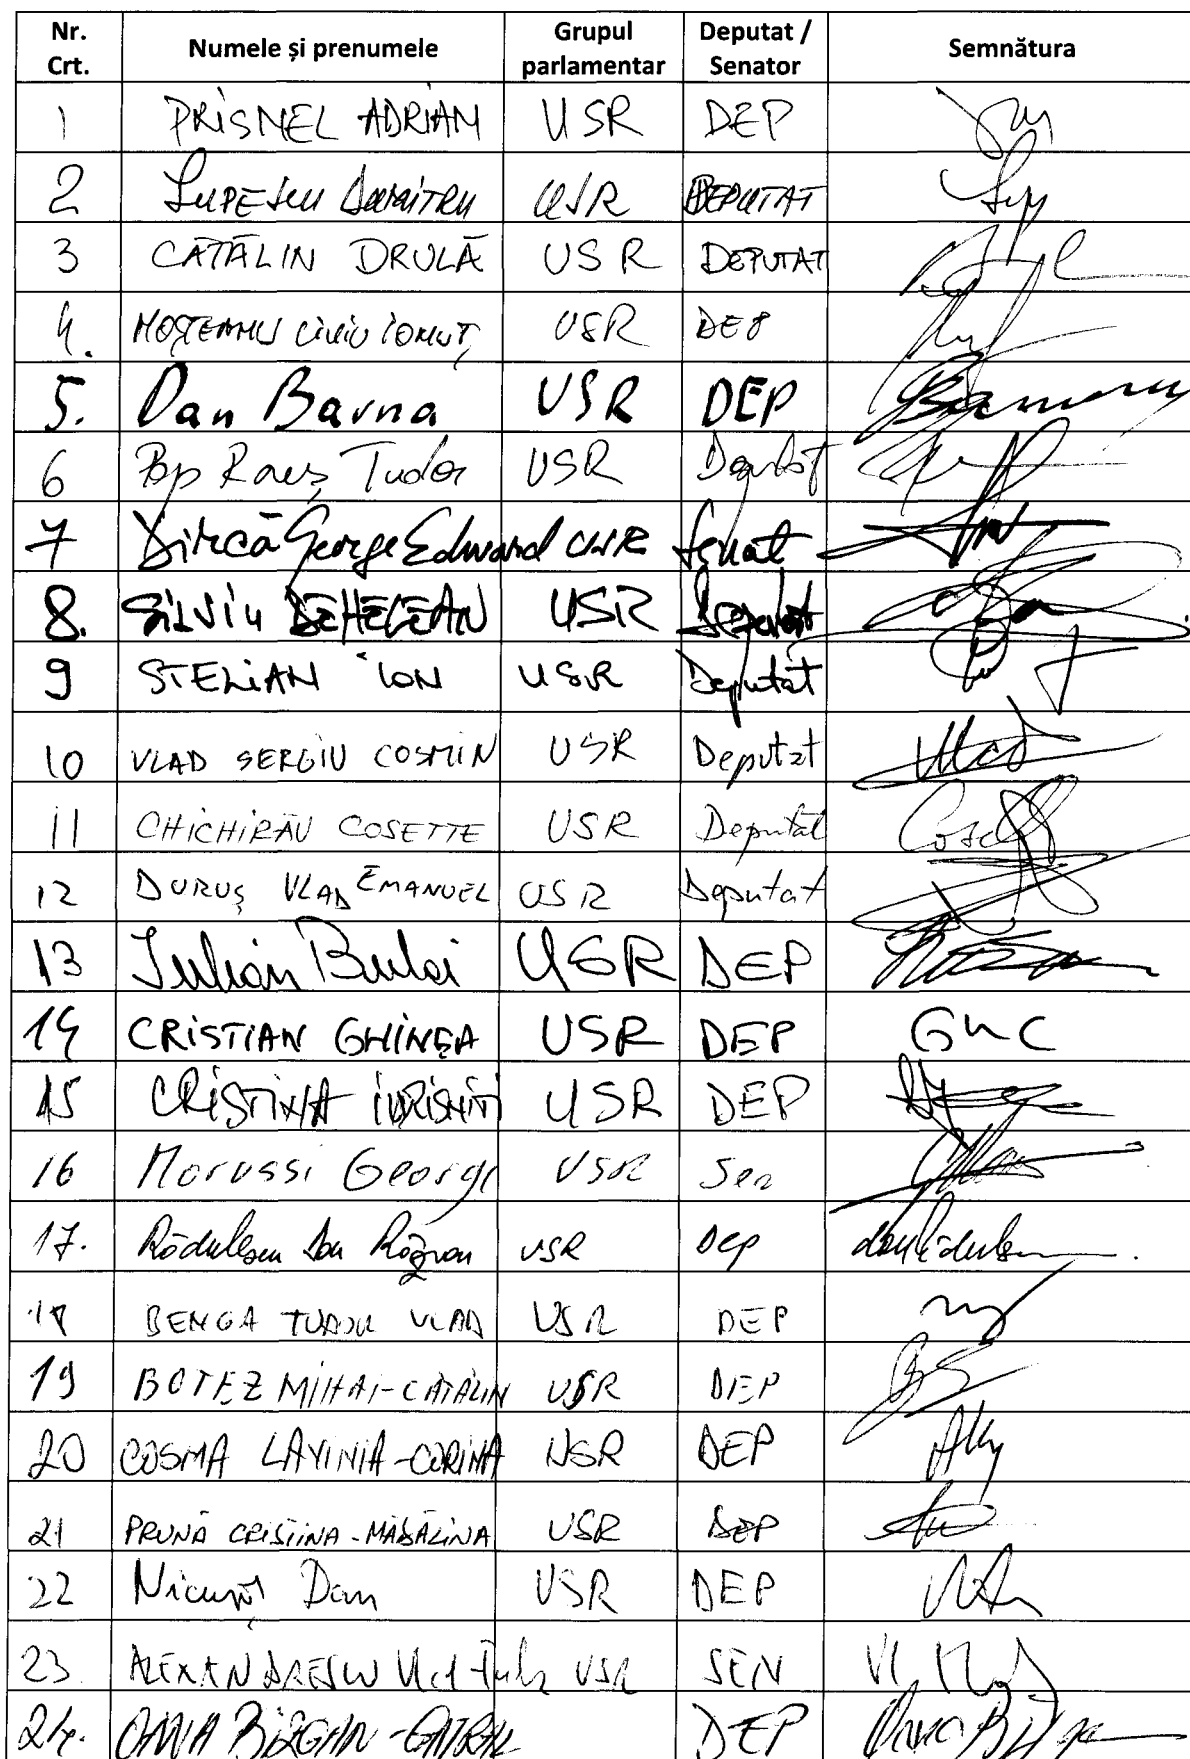 Nr. Crt. Numele și prenumele Grupul parlamentar Deputat / Senator Semnătura
1 PRISNEL ADRIAN USR DEP
2 LUPESCU DUMITRU USR DEPUTAT
3 CĂTĂLIN DRULĂ USR DEPUTAT
4. MOȘTEANU LIVIU IONUȚ USR DEP
5. Dan Barna USR DEP
6 Pop Rareș Tudor USR Deputat
7 Dircă George Edward USR Senat
8. SILVIU DEHELEAN USR Deputat
9 STELIAN ION USR Deputat
10 VLAD SERGIU COSMIN USR Deputat
11 CHICHIRĂU COSETTE USR Deputat
12 DURUȘ VLAD EMANUEL USR Deputat
13 Iulian Bulai USR DEP
14 CRISTIAN GHINEA USR DEP GHC
15 CRISTINA IURIȘNIȚI USR DEP
16 Marussi George USR Sen
17. Rădulescu Dan Răzvan USR Dep
18 BENGA TUDOR VLAD USR DEP
19 BOTEZ MIHAI-CĂTĂLIN USR DEP
20 COSMA LAVINIA-CORINA USR DEP
21 PRUNĂ CRISTINA-MĂDĂLINA USR DEP
22 Nicușor Dan USR DEP
23 ALEXANDRESCU Vlad USR SEN
24. OANA BÎZGAN-GAYRAL DEP